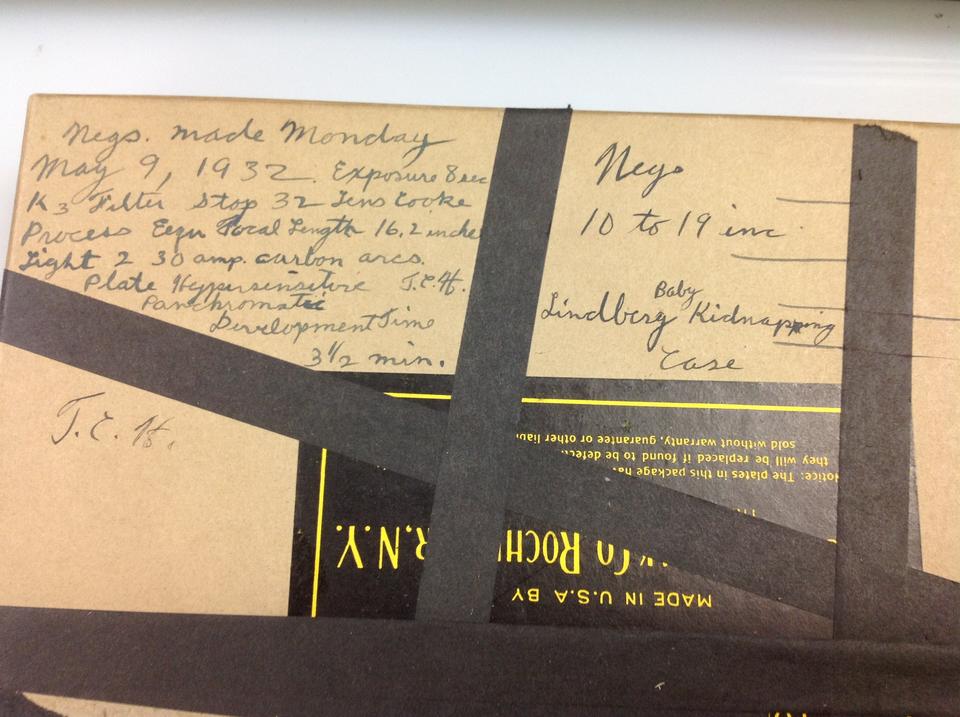 Negs. made Monday
May 9, 1932. Exposure 8 sec
K3 Filter Stop 32 Lens Cooke
Process Focal Length 16.2 inche
Light 2 30 amp. carbon arcs.
Plate Hypersensitive J.E.H.
Panchromatic
Development Time
3 1/2 min.
Negs
10 to 19 inc.
Baby
Lindberg Kidnapping
Case
J.E.H.
MADE IN U.S.A BY
Co ROCH R.N.Y.
Notice: The plates in this package ha
they will be replaced if found to be defecti
sold without warranty, guarantee or other liab